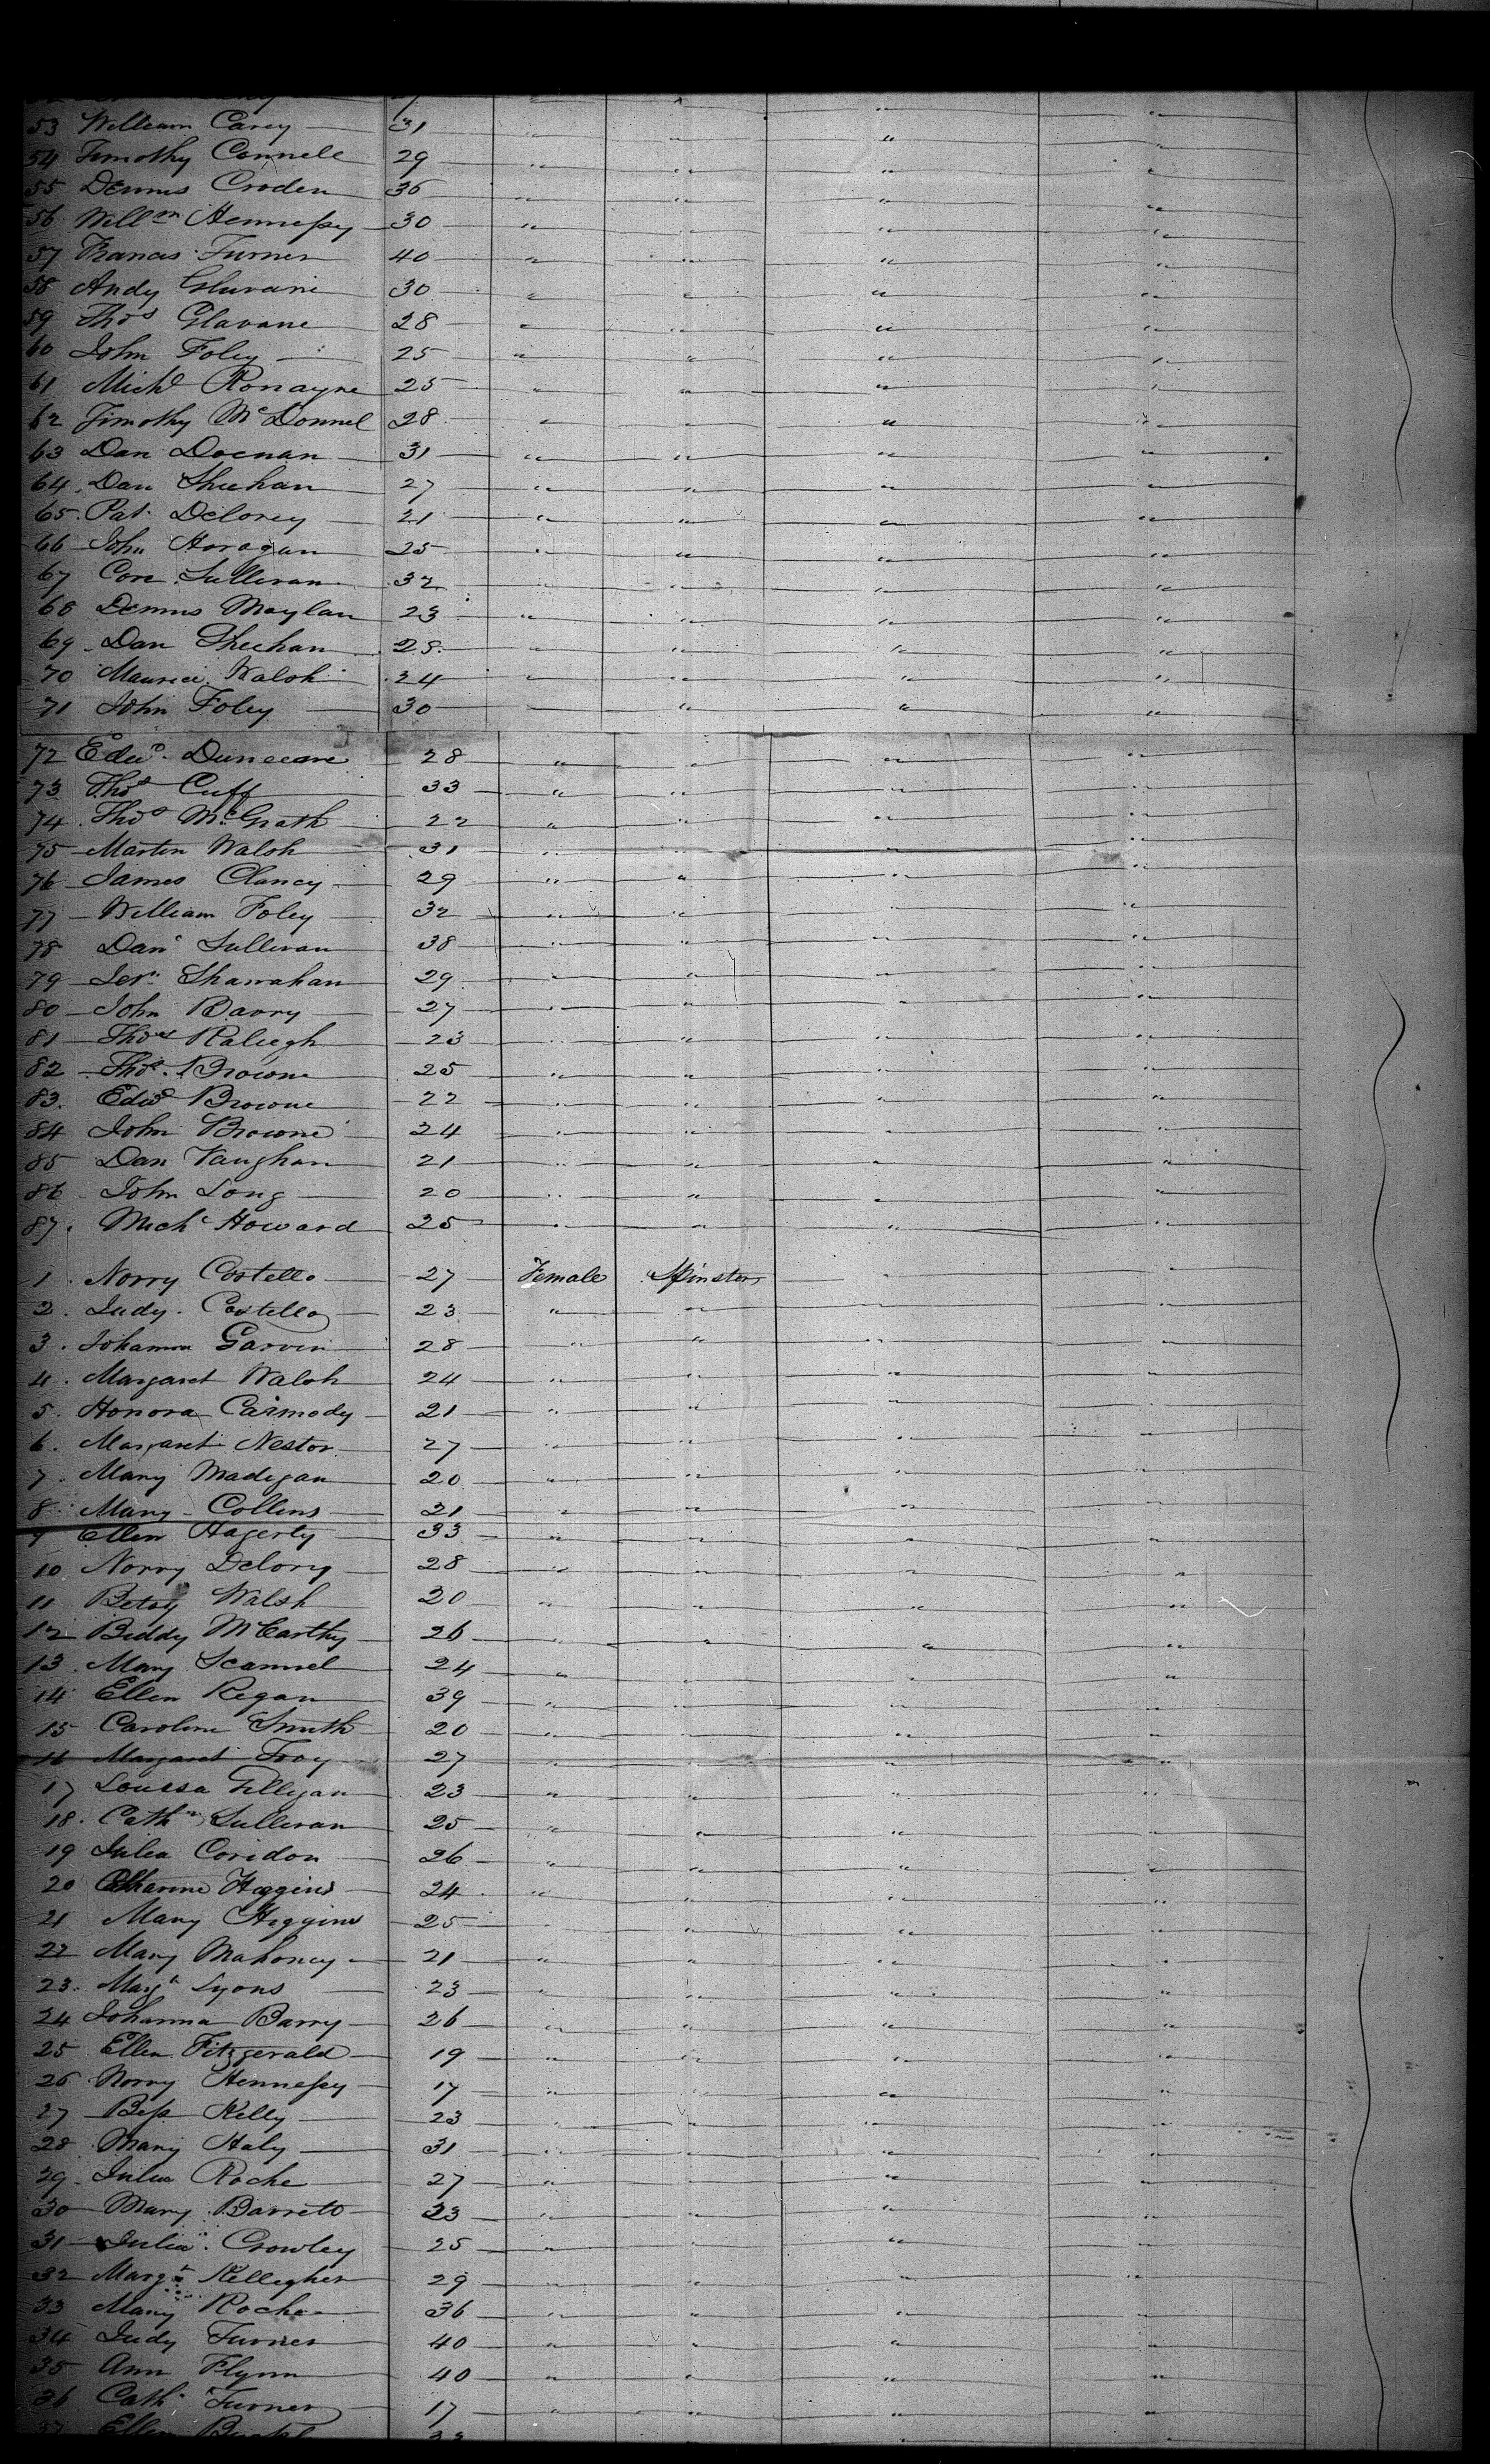 53 William Carey 31 " " " "
54 Timothy Connell 29 " " " "
55 Dennis Croden 36 " " " "
56 Willm Hennessy 30 " " " "
57 Francis Turner 40 " " " "
58 Andy 30 " " " "
59 Thos Glavane 28 " " " "
60 John Foley 25 " " " "
61 Michl Ronayne 25 " " " "
62 Timothy McDonnel 28 " " " "
63 Dan 31 " " " "
64 Dan Sheehan 27 " " " "
65 Pat Delorey 21 " " " "
66 John Horogan 25 " " " "
67 Corn Sullivan 32 " " " "
68 Dennis Moylan 23 " " " "
69 Dan Sheehan 28 " " " "
70 Maurice Walsh 24 " " " "
71 John Foley 30 " " "
72 Edwd 28 " " " "
73 Thos Cuff 33 " " " "
74 Thos McGrath 22 " " " "
75 Martin Walsh 31 " " " "
76 James Clancy 29 " " " "
77 William Foley 32 " " " "
78 Danl Sullivan 38 " " " "
79 Jerh Shanahan 29 " " " "
80 John Barry 27 " " " "
81 Thos Raleegh 23 " " " "
82 Thos Browne 25 " " " "
83 Edwd Browne 22 " " " "
84 John Browne 24 " " " "
85 Dan Vaughan 21 " " " "
86 John Long 20 " " " "
87 Michl Howard 25 " " " "
1 Norry Costello 27 Female Spinster " "
2 Judy Costello 23 " " " "
3 Johanna Garvin 28 " " " "
4 Margaret Walsh 24 " " " "
5 Honora Carmody 21 " " " "
6 Margaret Nestor 27 " " " "
7 Mary Madigan 20 " " " "
8 Mary Collins 21 " " " "
9 Ellen Hagerty 33 " " " "
10 Norry Delory 28 " " " "
11 Betsy Walsh 20 " " " "
12 Biddy McCarthy 26 " " " "
13 Mary Scannel 24 " " " "
14 Ellen Regan 39 " " " "
15 Caroline Smith 20 " " " "
16 Margaret 27 " " " "
17 Louisa 23 " " " "
18 Cathn Sullivan 25 " " " "
19 Julia Coridon 26 " " " "
20 Catharine Higgins 24 " " " "
21 Mary Higgins 25 " " " "
22 Mary Mahoney 21 " " " "
23 Margt Lyons 23 " " " "
24 Johanna Barry 26 " " " "
25 Ellen Fitzgerald 19 " " " "
26 Norry Hennessy 17 " " " "
27 Bess Kelly 23 " " " "
28 Mary Haly 31 " " " "
29 Julia Roche 27 " " " "
30 Mary Barrett 23 " " " "
31 Julia Crowley 25 " " " "
32 Margt Kellegher 29 " " " "
33 Mary Roche 36 " " " "
34 Judy Turner 40 " " " "
35 Ann Flynn 40 " " " "
36 Cath Turner 17 " " " "
37 Ellen